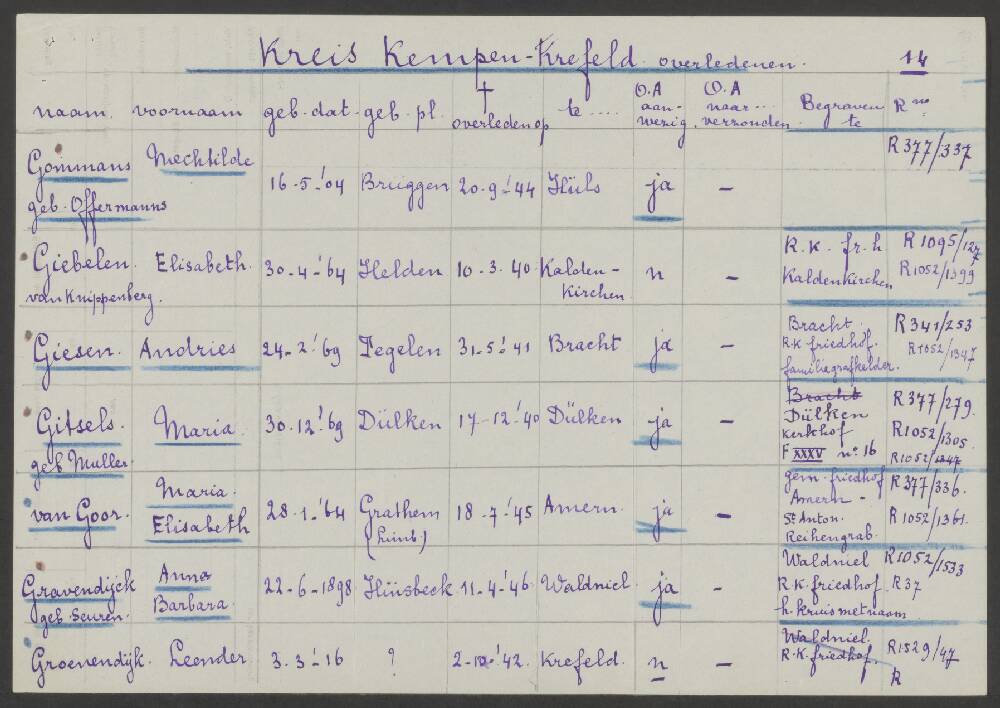 Kreis Kempen-Krefeld overledenen. 14
naam. voornaam geb-dat- geb. pl. † overleden op te .... O.A aan-wezig. O.A naar... verzonden. Begraven te R no
Gommans geb. Offermanns Mechtilde 16-5-'04 Brüggen 20-9-'44 Hüls ja - R377/337
Giebelen. van Knippenberg. Elisabeth. 30-4-'64 Helden 10-3.40 Kalden-kirchen. n - R.K. fr.h Kaldenkirchen R1095/127 R1052/1399
Giesen. Andries 24-2'69 Tegelen 31-5'41 Bracht ja - Bracht. R.K friedhof. familiegrafkelder. R341/253 R1052/1347
Gitsels. geb Muller. Maria. 30-12'69 Dülken 17-12-'40 Dülken ja - Bracht Dülken Kerkhof F XXXV no. 16 R377/279. R1052/1305 R1052/1347
van Goor. Maria. Elisabeth 28-1-'64 Grathem (Limb) 18-7-'45 Amern. ja - gem. friedhof Amern - St Anton. Reihengrab. R377/336. R1052/1361.
Gravendijck geb. Seuren. Anna Barbara. 22-6-1898 Hinsbeck 11-4-'46 Waldniel ja - Waldniel R.K. friedhof. h. Kruis met naam. R1052/1533 R37
Groenendijk. Leender 3-3-'16 ? 2-10-'42. Krefeld. n - Waldniel. R.K. friedhof. R1529/47 R